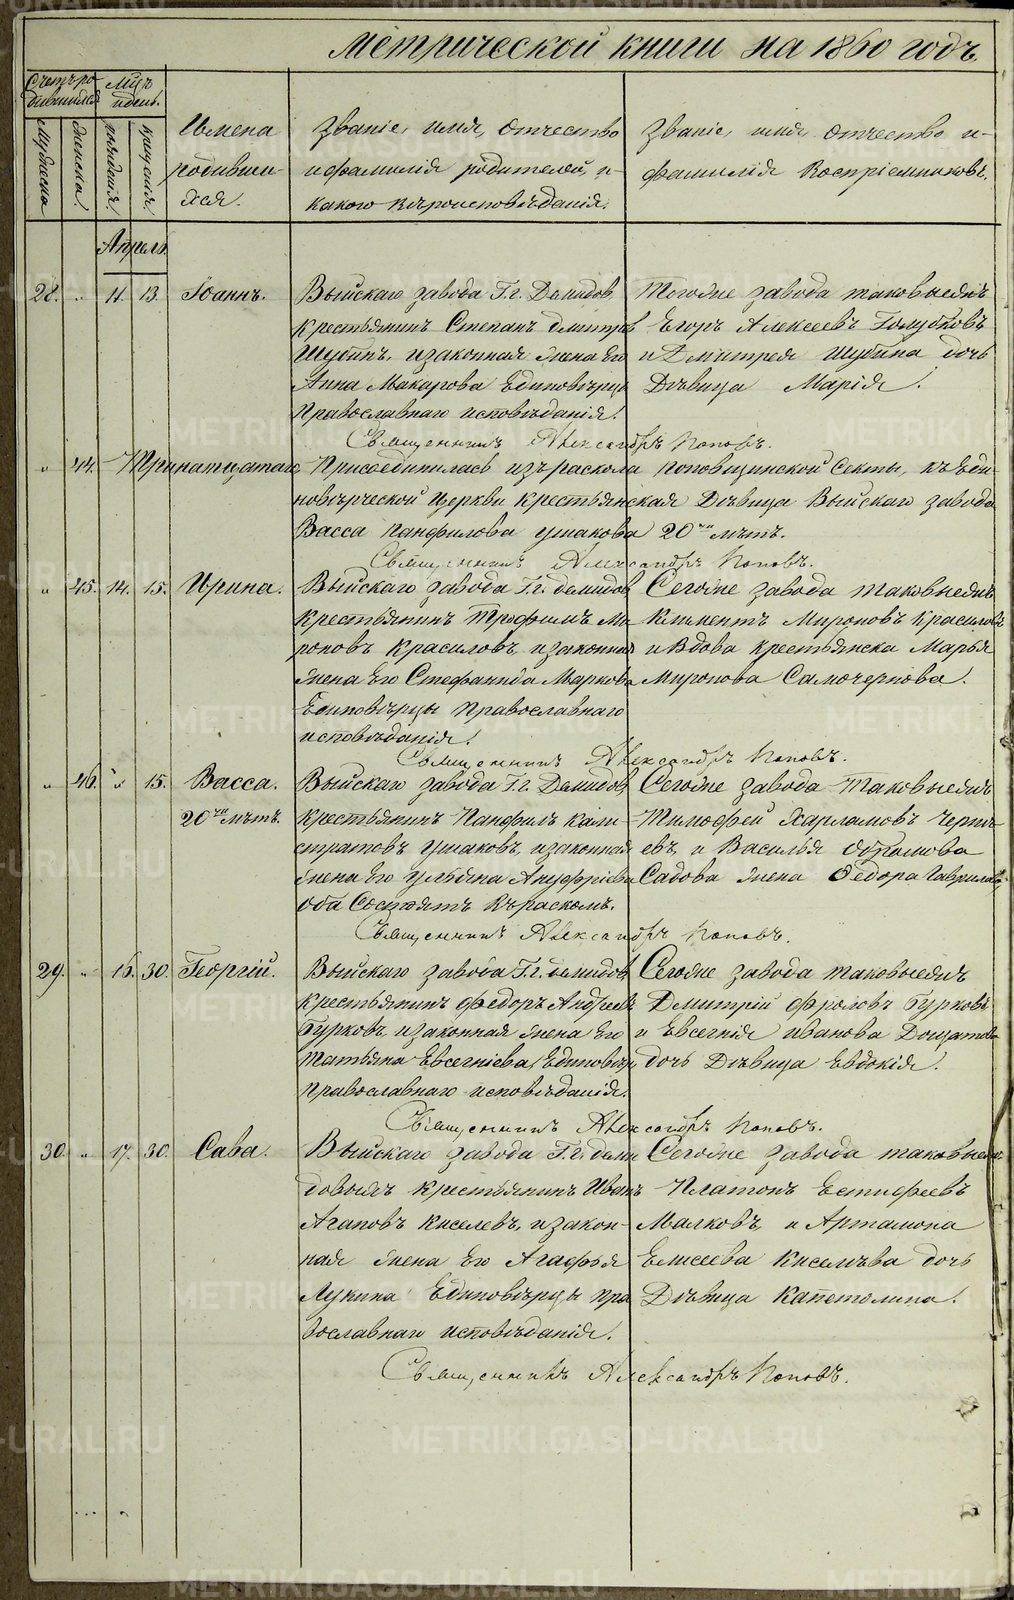 метрической книги на 1860 годъ.
Счетъ ро-
дившихся
Мц҃ъ
и день.
Мужеска
Женска.
рожденія.
крещенія.
Имена
родивши-
хся.
Званіе, имя, отчество
и фамилія родителей, и
какого вѣроисповѣданія.
Званіе, имя отчество и
фамилія Воспріемниковъ.
Апрель
28. „ 11. 13. Іоаннъ.
Выйскаго завода Г.г. Демидов
крестьянинъ Степанъ Дмитрев
Шубинъ, и законная жена его
Анна Макарова Единовѣрцы
Православнаго исповѣданія.
Тогоже завода таковыежъ
Егоръ Алексеевъ Голубковъ
и Дмитрея Шубина дочь
Дѣвица Марія.
Священникъ Александръ Поповъ.
„ 44. Тринатцатаго Присоединилась изъ раскола поповщинской Секты, къ Еди-
новѣрческой Церкви крестьянская Дѣвица Выйскаго завода
Васса Панфилова Ушакова 20ти лѣтъ.
Священникъ Александръ Поповъ.
„ 45. 14. 15. Ирина.
Выйскаго завода Г.г. Демидов
крестьянинъ Трофимъ Ми-
роновъ Красиловъ, и законная
жена Его Стефанида Маркова
Единовѣрцы Православнаго
исповѣданія.
Сегоже завода таковыежъ
Климентъ Мироновъ Красилов
и Вдова крестьянска Марья
Миронова Самочернова.
Священникъ Александръ Поповъ.
„ 46. „ 15. Васса.
20ти лѣтъ.
Выйскаго завода Г.г. Демидов
крестьянинъ Панфилъ Кали-
стратовъ Ушаковъ, и законная
жена Его Ульяна Ануфріева
оба Состоятъ въ расколѣ.
Сегоже завода Таковыежъ
Тимофей Харламовъ Черны-
евъ и Василья
Садова жена Федора Гаврилов
Священникъ Александръ Поповъ.
29. „ 16. 30. Георгій.
Выйскаго завода Г.г. Демидов
крестьянинъ Федоръ Андреевъ
Бурковъ, и законная жена Его
Татьяна Евсегніева Единовѣрц
Православнаго исповѣданія.
Сегоже завода таковыежъ
Дмитрій Фроловъ Бурковъ
и Евсегнія Иванова
дочь Дѣвица Евдокія.
Священникъ Александръ Поповъ.
30. „ 17. 30. Сава.
Выйскаго завода Г.г. Деми
довыхъ крестьянинъ Иванъ
Агаповъ Киселевъ, и закон-
ная жена Его Агафья
Лукина Единовѣрцы пра
вославнаго исповѣданія.
Сегоже завода таковыежъ
Платонъ Естифеевъ
Малковъ, и Артамона
Елисеева Киселѣва дочь
Дѣвица Капетолина.
Священникъ Александръ Поповъ.